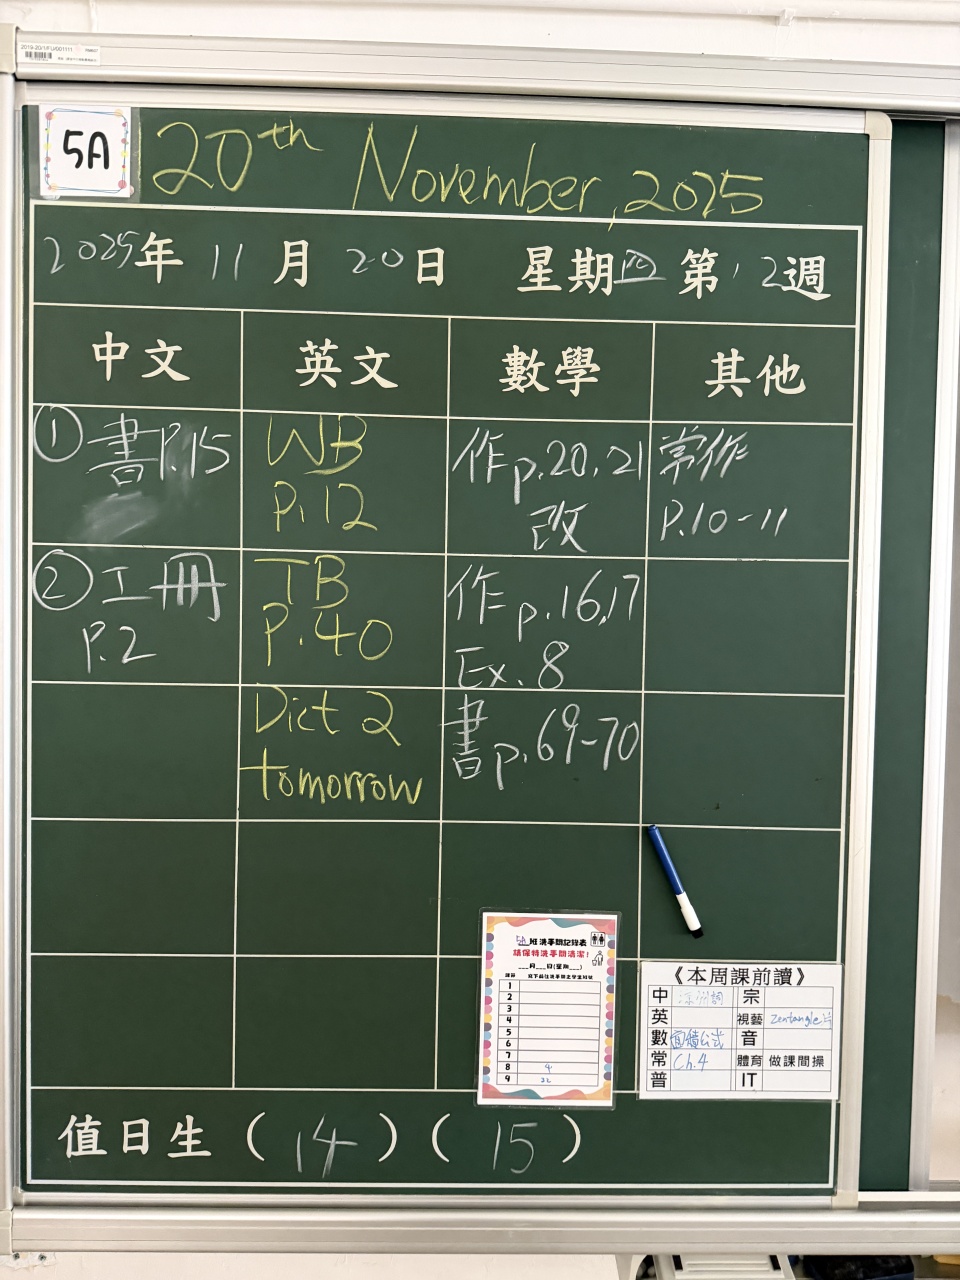 2019-20/1FLI/001111
5A
20th November, 2025
2025年 11月 20日 星期四 第12週
中文 英文 數學 其他
① 書P.15
② 工冊
P.2
WB
P.12
TB
P.40
Dict 2
tomorrow
作p.20,21
改
作p.16,17
Ex. 8
書p.69-70
常作
P.10-11
5A班洗手間記錄表
請保持洗手間清潔!
___月___日(星期___)
1
2
3
4
5
6
7
8 4
9 32
《本周課前讀》
中 宗
英 視藝 Zentangle
數 面積公式 音
常 Ch.4 體育 做課間操
普 IT
值日生 (14) (15)